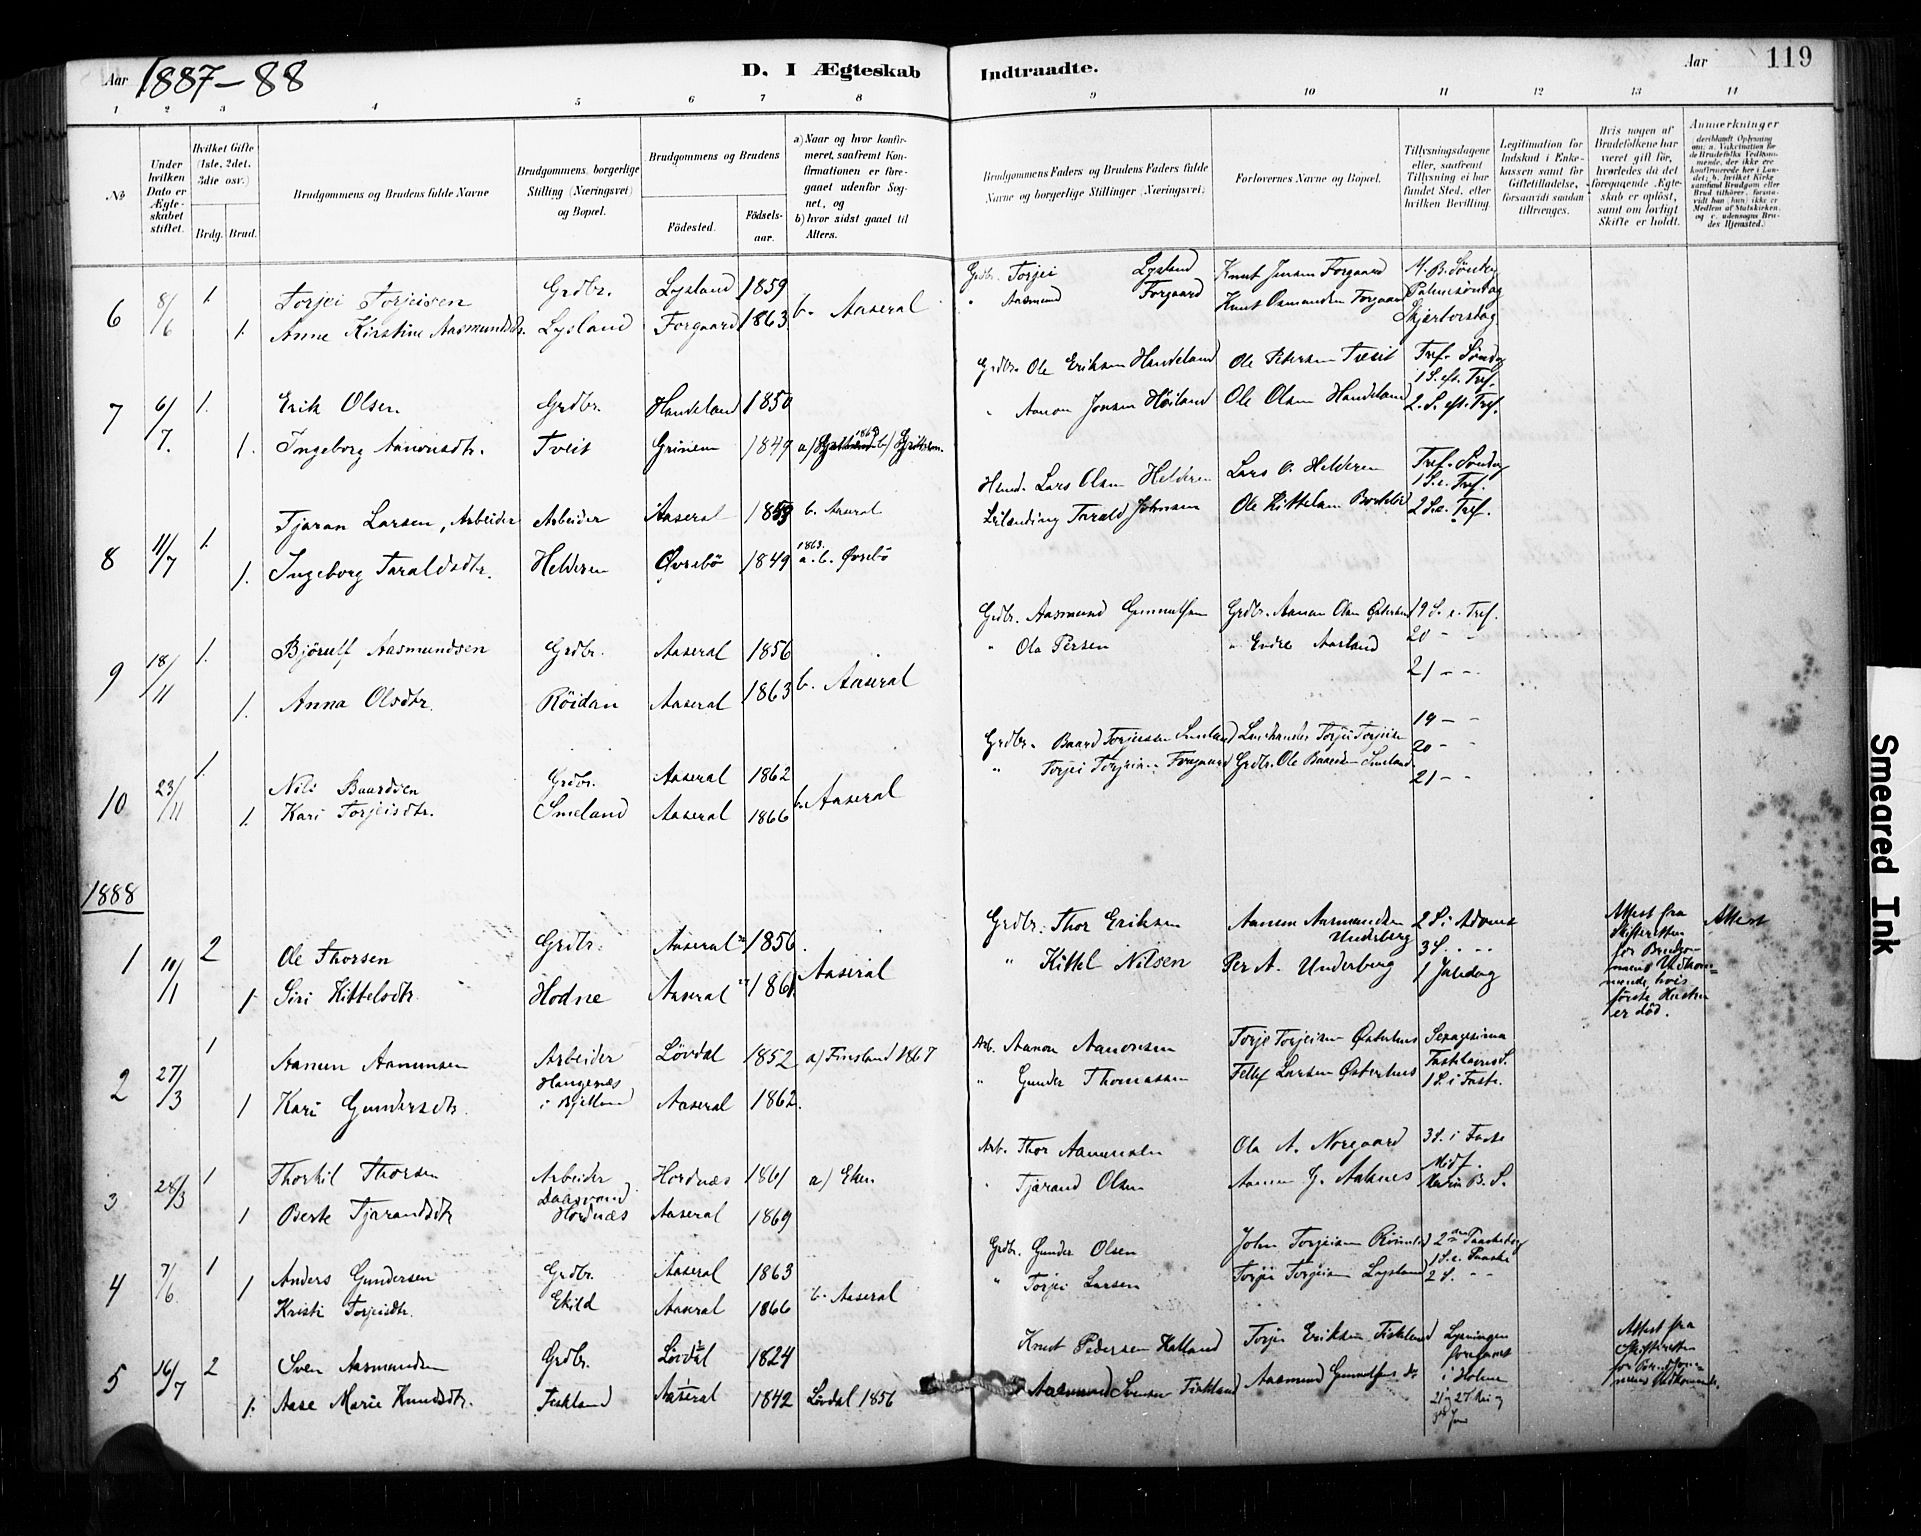 Aar 1887-88
D. I Ægteskab Indtraadte.
Aar 119
1 2 3 4 5 6 7 8 9 10 11 12 13 14
No
Under hvilken Dato er Ægteskabet stiftet.
Hvilket Gifte (1ste, 2det, 3die osv.)
Brdg. Brud.
Brudgommens og Brudens fulde Navne
Brudgommens borgerlige Stilling (Næringsvei) og Bopæl.
Brudgommens og Brudens
Fødested. Fødselsaar.
a) Naar og hvor konfirmeret, saafremt Konfirmationen er foregaaet udenfor Sognet, og
b) hvor sidst gaaet til Alters.
Brudgommens Faders og Brudens Faders fulde Navne og borgerlige Stillinger (Næringsvei)
Forlovernes Navne og Bopæl.
Tillysningsdagene eller, saafremt Tillysning ei har fundet Sted, efter hvilken Bevilling.
Legitimation for Indskud i Enkekassen samt for Giftetilladelse, forsaavidt saadan tiltrænges.
Hvis nogen af Brudefolkene har været gift før, hvorledes da det foregaaende Ægteskab er opløst, samt om lovligt Skifte er holdt.
Anmerkninger
6 8/6 1. Torjei Torjeisen Grdbr. Lysland 1859 b. Aaseral Grdbr. Torjei Lysland Knut Jensen Forgaard M. B. Søndag
1. Anne Kirstine Aasmundsdtr. Lysland Forgaard 1863 " Aasmund Forgaard Knut Osmundsen Forgaard Palmesøndag
Skjertorsdag
7 6/7. 1. Erik Olsen Grdbr. Handeland 1850 Grdbr. Ole Eriksen Handeland Ole Petersen Tveit Tref. Søndag
1 S. eft. Tref.
1. Ingeborg Aanonsdtr. Tveit Grinem 1849 " Aanon Jonsen Høiland Ole Olsen Handeland 2. S. eft. Tref.
8 11/7 1. Tjaran Larsen, Arbeider Arbeider Aaseral 1853 b. Aaseral Lars Olsen Helderen Lars O. Helderen Tref. Søndag
1 S. e. Tref.
1. Ingeborg Taraldsdtr. Helderen Øvrebø 1849 1863. a. b. Øvrebø Leilænding Tarald Johnsen Ole Kittelsen 2 S. e. Tref.
9 18/11 1. Bjørulf Aasmundsen Grdbr. Aaseral 1856 b. Aaseral Grdbr. Aasmund Gunnulfsen Grdbr. Aanon Olsen 19 S. e. Tref.
1. Anna Olsdtr. Røidan Aaseral 1863 " Ola Persen " Endre Aasland 20 - -
21 - -
10 23/11 1. Nils Baardsen Grdbr. Aaseral 1862 b. Aaseral Grdbr. Baard Torjussen Smeland Torjei Torjeisen 19 - -
1. Kari Torjeisdtr. Smeland Aaseral 1866 " Torjei Torjeisen Forgaard Grdbr. Ole Baardsen Smeland 20 - -
21 - -
1888
1 10/1 2 Ole Thorsen Grdbr. Aaseral 1856. Aaseral Grdbr. Thor Eriksen Aanon Aasmundsen Underberg 2 S. i Advent Attest fra Skifteretten for Brudgommens Vedkommende, hvis første Hustru er død. Attest
1. Siri Kittelsdtr. Hodne Aaseral 1861. " Kittel Nilsen Per A. Underberg 3 S. - -
1 Juledag
2 27/3 1 Aanun Aanunsen Arbeider Løvdal 1852 a) Finsland 1867 Arb. Aanon Aanonsen Torje Torjeisen Østerhus Sexagesima
1 Kari Gundersdtr. i Bjelland Aaseral 1862. " Gunder Thomassen Fellef Larsen Østerhus Fastelavns S.
1 S. i Faste.
3 28/3 1 Thorkil Thorsen Arbeider Hordnæs 1861 a) Eken Arb. Thor Aanunsen Ola A. Norgaard 3 S. i Faste
1 Berte Tjarandsdtr Hordnæs Aaseral 1869 " Tjarand Olsen Aanon G. Aaknes Midf.
Mariæ B. S.
4 7/6. 1 Anders Gundersen Grdbr. Aaseral 1863 b. Aaseral Grdbr. Gunder Olsen John Torjeisen 2den Paaskedag
1 Kristi Torjeisdtr. Ekild Aaseral 1866 " Torjei Larsen Torjei Torjeisen Lysland 1 S. e. Paaske
2 S. - -
5 16/7 2 Sven Aasmundsen Grdbr. Løvdal 1824 Knut Pedersen Hatland Torjei Eriksen Fiskland Lysningen foregaaet i Holme Attest fra Skifteretten for Brudgommens Vedkommende.
1. Aase Marie Knudsdtr. Fiskland Aaseral 1842 Løvdal 1856 Aasmund Svensen Fiskland Aasmund Gunnulfsen do
Smeared Ink